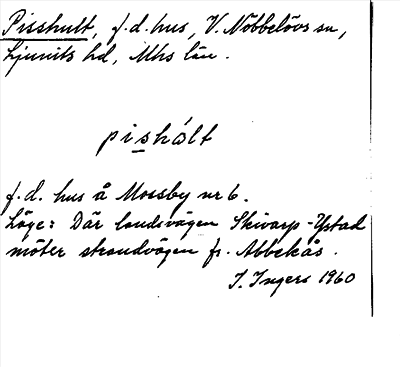 Pisshult, f.d. hus, V. Nöbbelövs sn,
Ljunits hd, Mhs län.
pishált
f.d. hus å Mossby nr 6.
Läge: Där landsvägen Skivarp-Ystad
möter strandvägen fr. Abbekås.
I. Ingers 1960